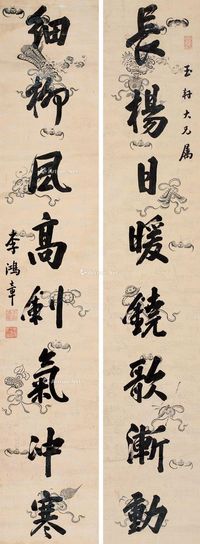 長楊日暖鐃歌漸動
玉軒大兄屬
細柳風高劍氣沖寒
李鴻章